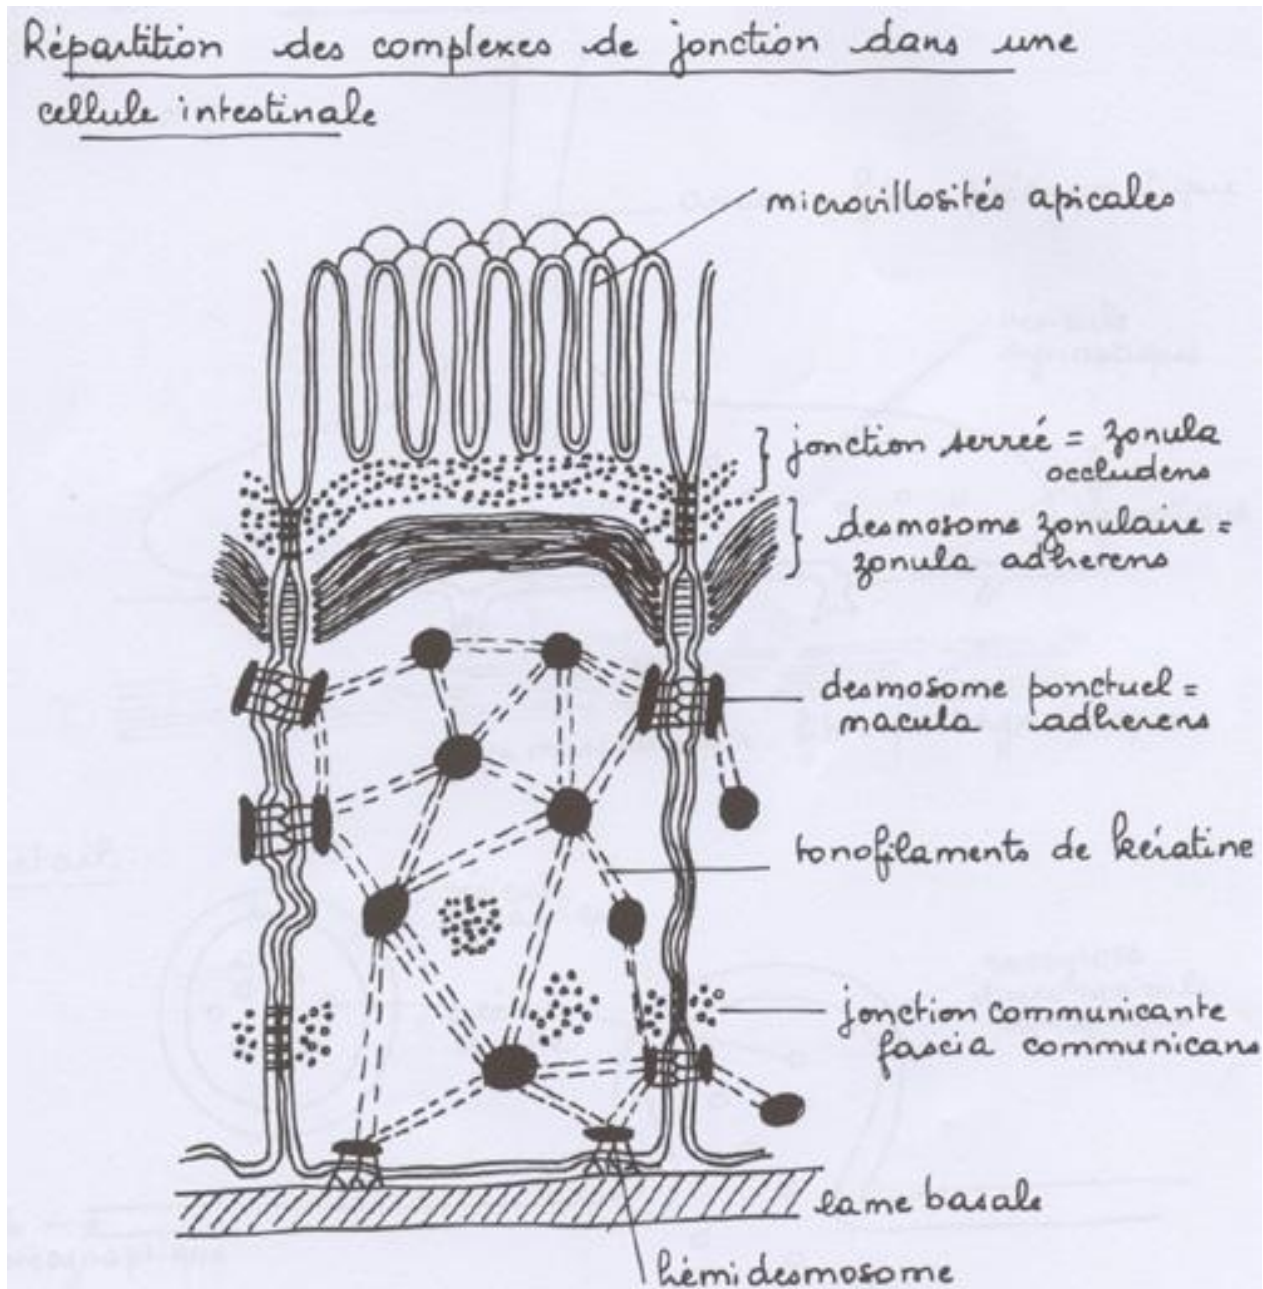 Répartition des complexes de jonction dans une
cellule intestinale
microvillosités apicales
jonction serreé = zonula
occludens
desmosome zonulaire =
zonula adherens
desmosome ponctuel =
macula adherens
tonofilaments de kératine
jonction communicante
fascia communicans
lame basale
hémidesmosome